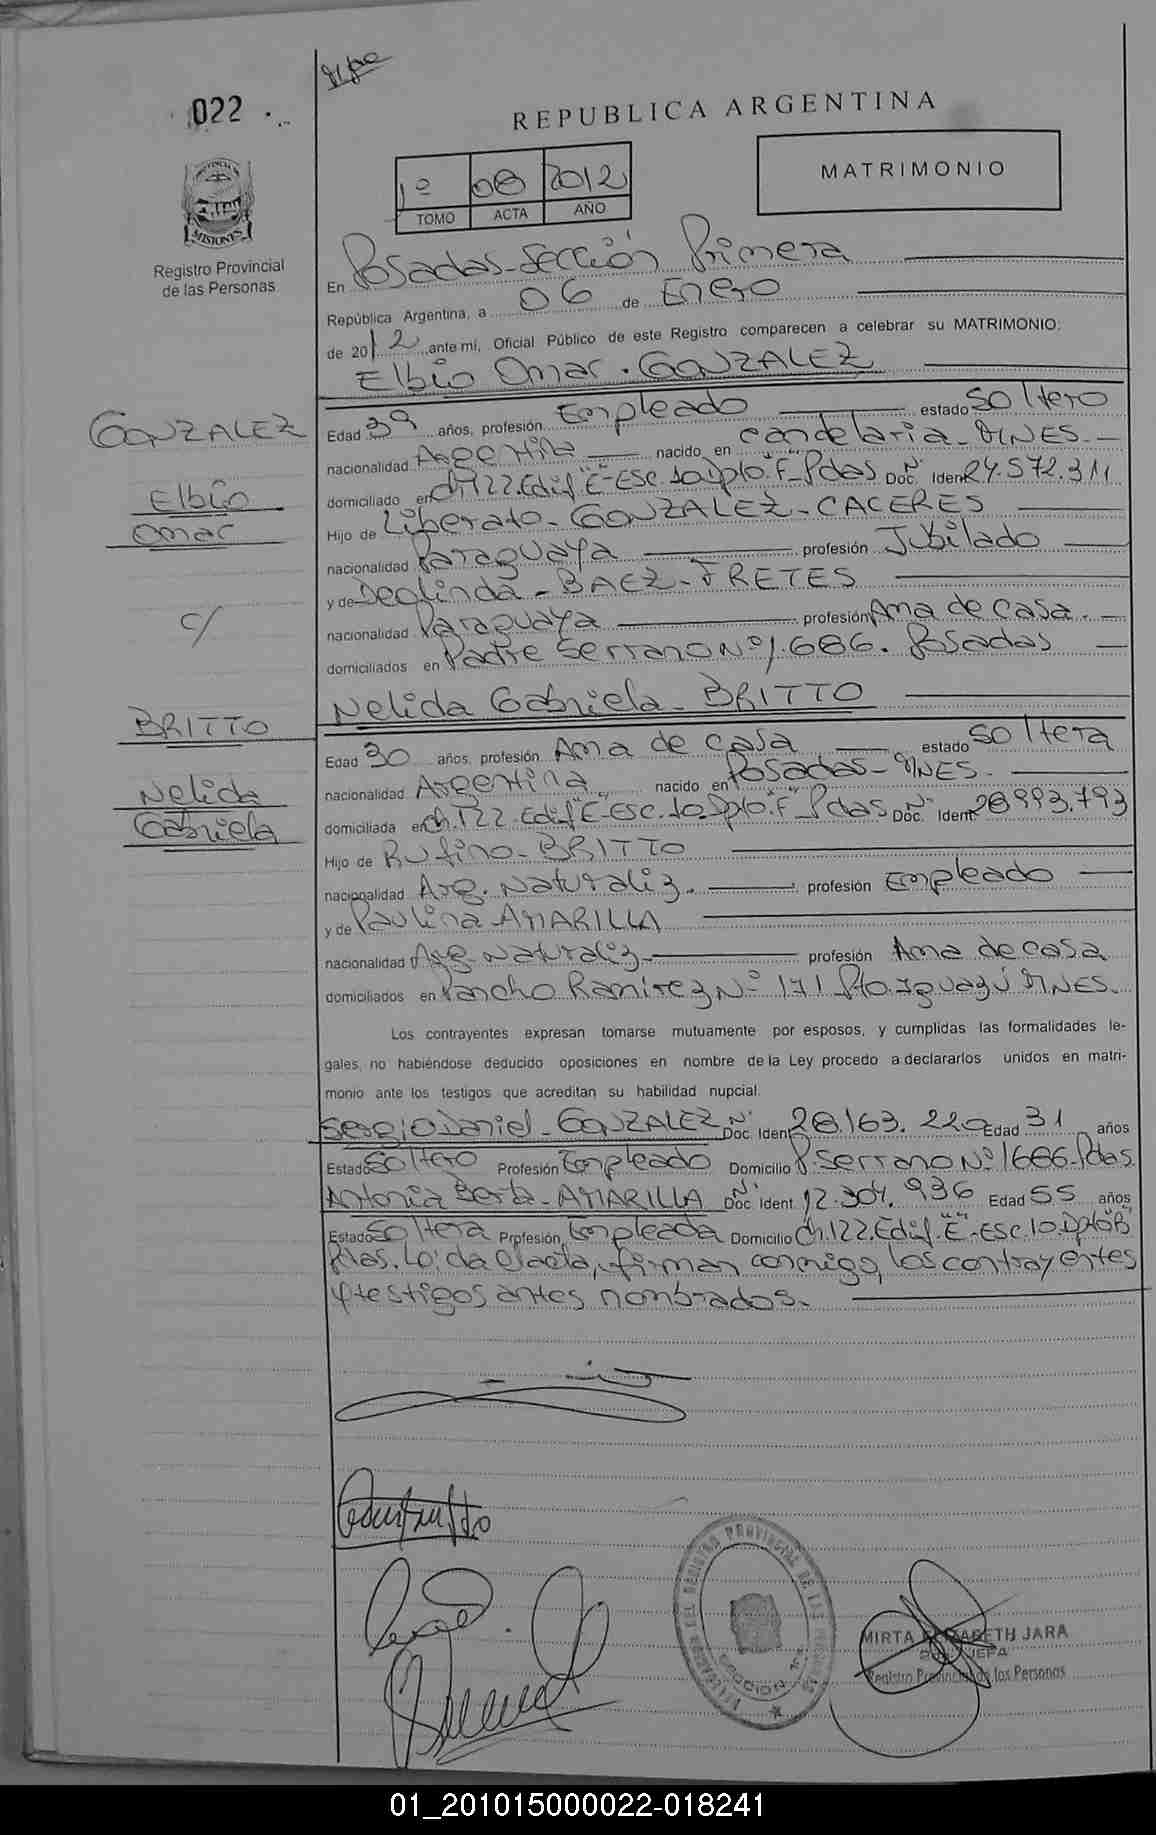 022
REPUBLICA ARGENTINA
MATRIMONIO
1º 08 2012
TOMO ACTA AÑO
PROVINCIA
MISIONES
Registro Provincial
de las Personas
En Posadas-Sección Primera
República Argentina, a 06 de Enero
de 2012 ante mi, Oficial Público de este Registro comparecen a celebrar su MATRIMONIO:
Elbio Omar. GONZALEZ
GONZALEZ
Elbio
Omar
c/
Edad 39 años, profesión Empleado estado soltero
nacionalidad Argentina nacido en Candelaria-MNES.-
domiciliado en Ch.122.Edif."E"-Esc.10.Dpto."F"-Pdas Doc. Nº Ident 24.572.311
Hijo de Liberato-GONZALEZ-CACERES
nacionalidad Paraguaya profesión Jubilado
y de Deolinda-BAEZ-FRETES
nacionalidad Paraguaya profesión Ama de casa.
domiciliados en Padre Serrano Nº 1.686. Posadas
Nelida Gabriela-BRITTO
BRITTO
Nelida
Gabriela
Edad 30 años, profesión Ama de casa estado soltera
nacionalidad Argentina nacido en Posadas-MNES.
domiciliada en Ch.122.Edif"E"-Esc.10.Dpto."F"-Pdas Doc. Nº Ident 28.993.793
Hijo de Rufino-BRITTO
nacionalidad Arg. Naturaliz. profesión Empleado
y de Paulina-AMARILLA
nacionalidad Arg. Naturaliz. profesión Ama de casa
domiciliados en Pancho Ramirez Nº 171 Pto.Iguazú MNES.
Los contrayentes expresan tomarse mutuamente por esposos, y cumplidas las formalidades le-
gales, no habiéndose deducido oposiciones en nombre de la Ley procedo a declararlos unidos en matri-
monio ante los testigos que acreditan su habilidad nupcial.
Sergio Daniel-GONZALEZ Doc. Nº Ident 28.163.220 Edad 31 años
Estado Soltero Profesión Empleado Domicilio P.Serrano Nº 1686-Pdas.
Antonia Berta-AMARILLA Doc. Nº Ident. 12.304.936 Edad 55 años
Estado Soltera Profesión Empleada Domicilio Ch.122.Edif."E"-Esc.10.Dpto"B"
Pdas. Leída el acta, firman conmigo, los contrayentes
y testigos antes nombrados.
MIRTA ELIZABETH JARA
JEFA
Registro Provincial de las Personas
01_201015000022-018241